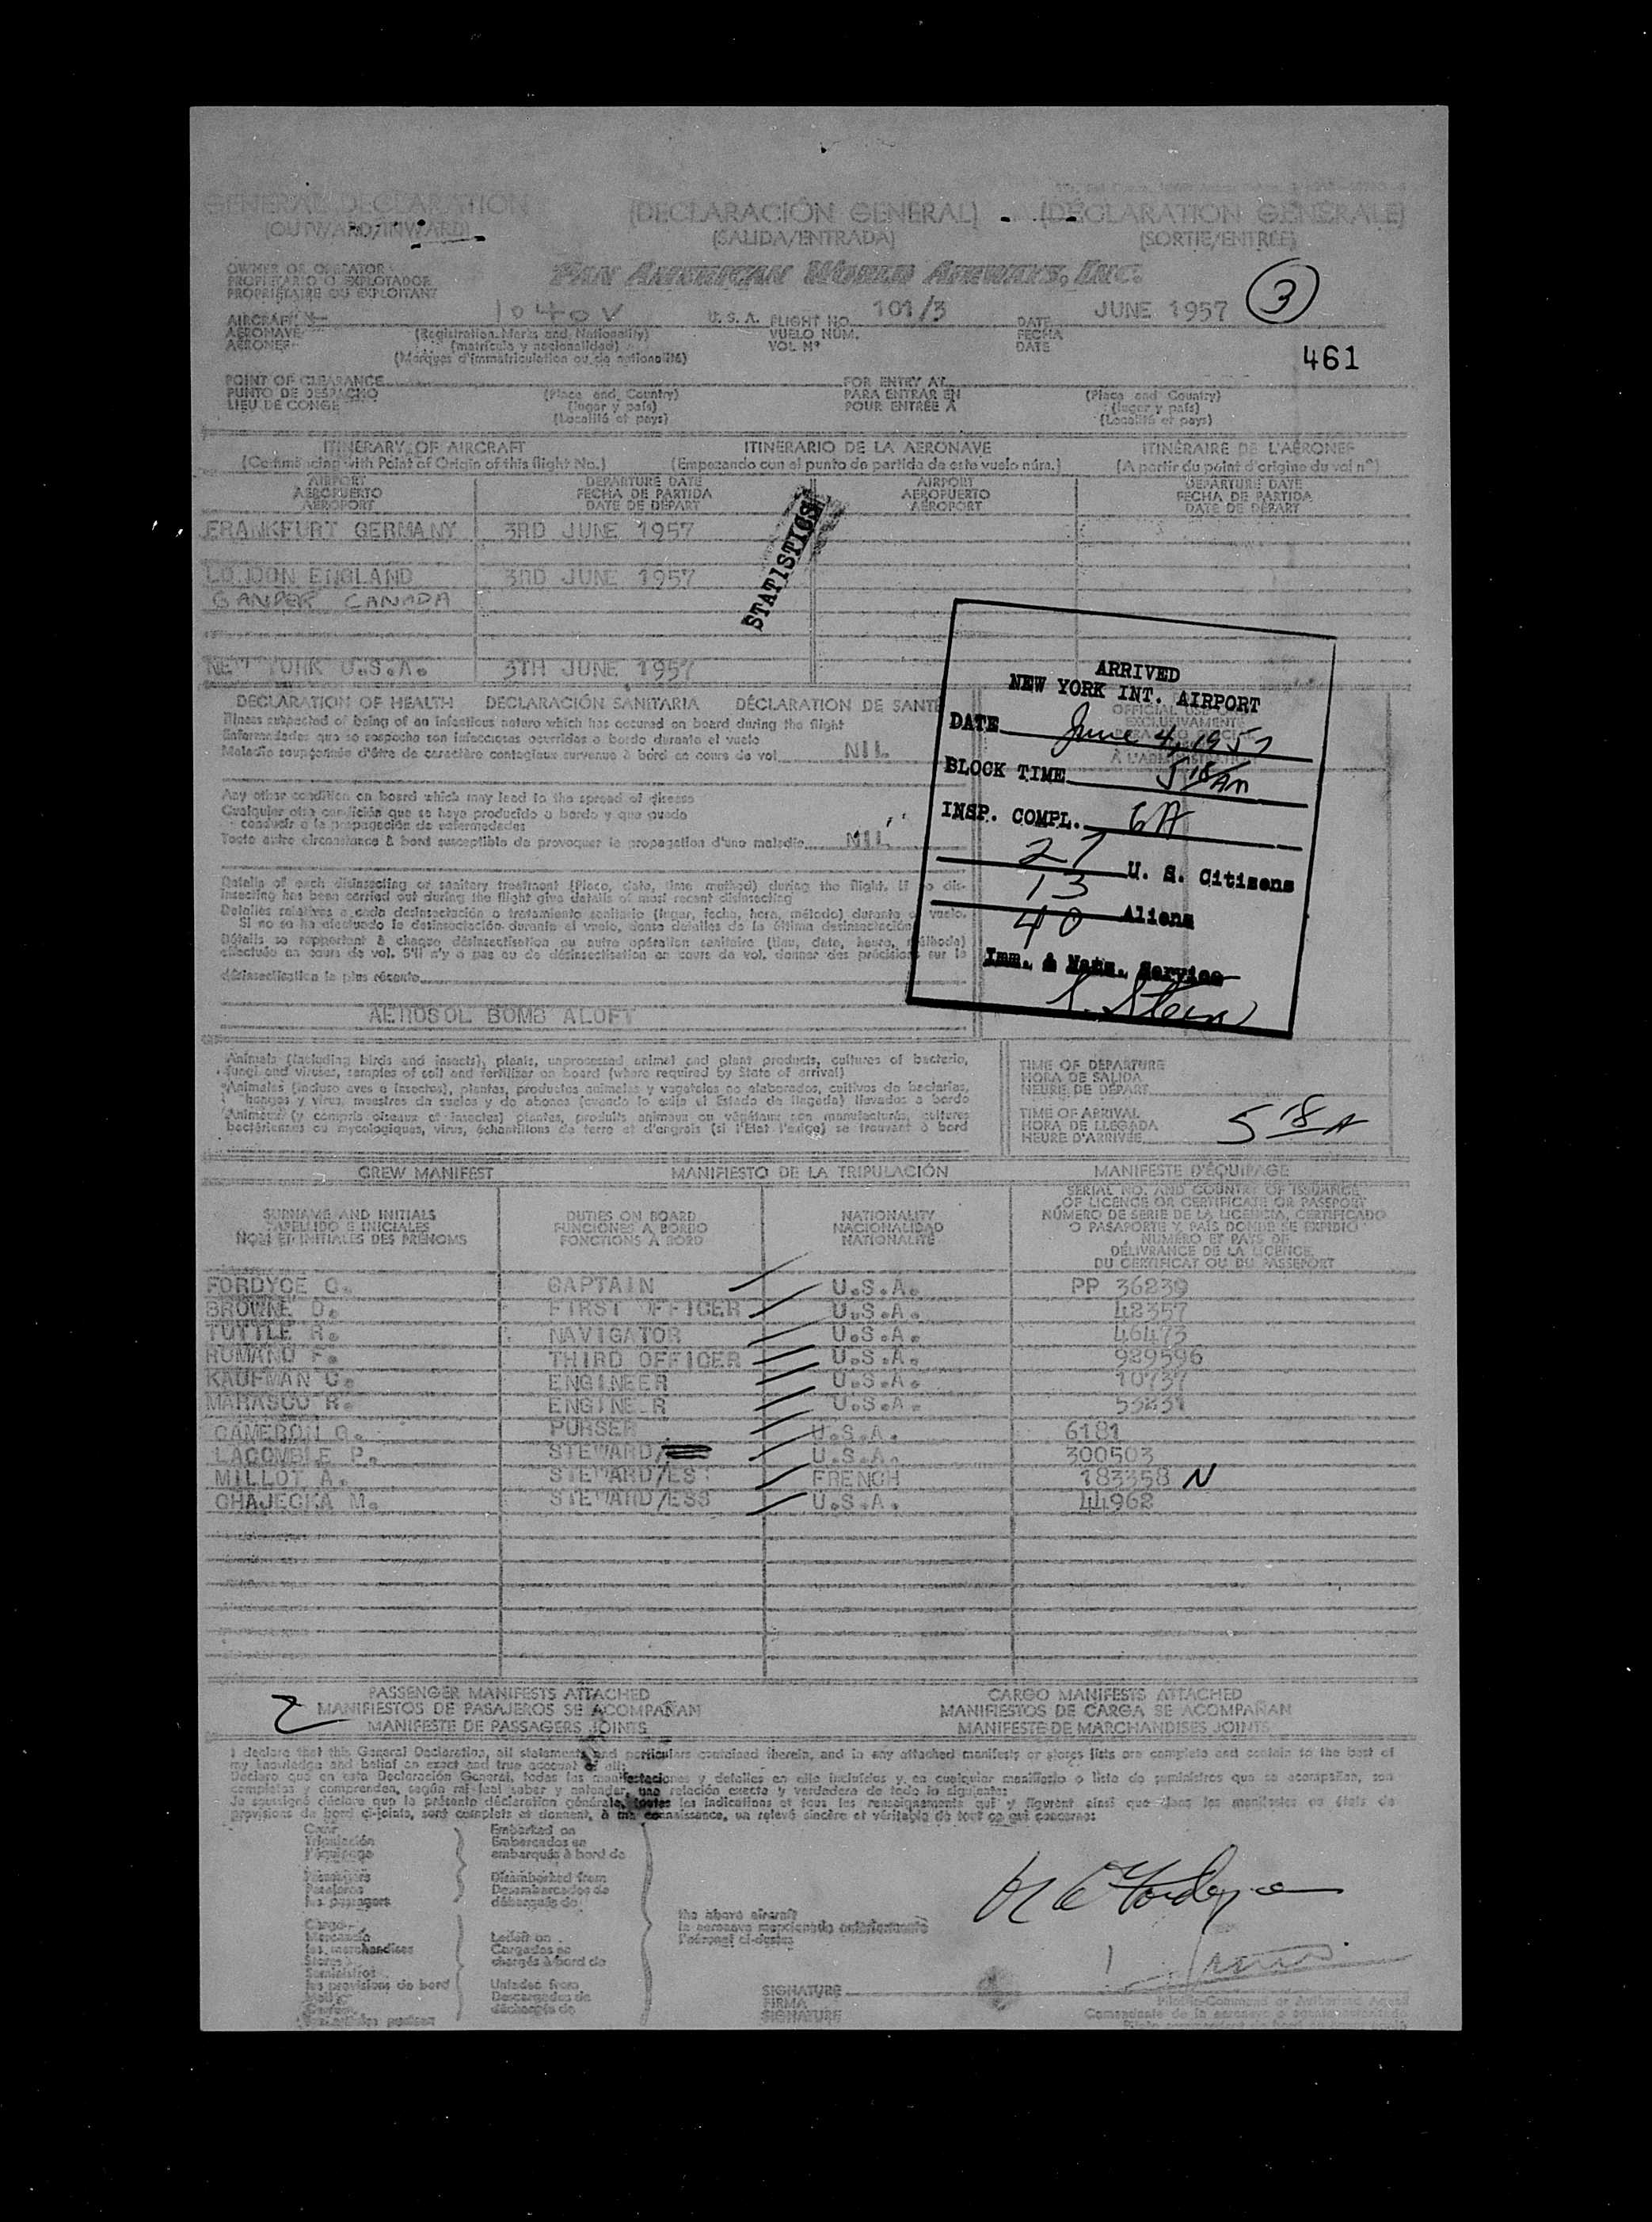 GENERAL DECLARATION (DECLARACIÓN GENERAL) (DÉCLARATION GÉNÉRALE)
(OUTWARD/INWARD) (SALIDA/ENTRADA) (SORTIE/ENTRÉE)
OWNER OR OPERATOR
PROPIETARIO O EXPLOTADOR
PROPRIÉTAIRE OU EXPLOITANT
PAN AMERICAN WORLD AIRWAYS, INC.
3
AIRCRAFT 1040V U.S.A. FLIGHT NO. 101/3 DATE JUNE 1957
AERONAVE (Registration Marks and Nationality) VUELO NÚM. FECHA
AÉRONEF (matrícula y nacionalidad) VOL Nº DATE
(Marques d'immatriculation ou de nationalité)
461
POINT OF CLEARANCE FOR ENTRY AT
PUNTO DE DESPACHO (Place and Country) PARA ENTRAR EN (Place and Country)
LIEU DE CONGÉ (lugar y país) POUR ENTRÉE À (lugar y país)
(Localité et pays) (Localité et pays)
ITINERARY OF AIRCRAFT ITINERARIO DE LA AERONAVE ITINÉRAIRE DE L'AÉRONEF
(Commencing with Point of Origin of this flight No.) (Empezando con el punto de partida de este vuelo núm.) (A partir du point d'origine du vol nº)
AIRPORT DEPARTURE DATE AIRPORT DEPARTURE DATE
AEROPUERTO FECHA DE PARTIDA AEROPUERTO FECHA DE PARTIDA
AÉROPORT DATE DE DÉPART AÉROPORT DATE DE DÉPART
FRANKFURT GERMANY 3RD JUNE 1957
STATISTICS
LONDON ENGLAND 3RD JUNE 1957
GANDER CANADA
NEW YORK U.S.A. 3TH JUNE 1957
ARRIVED
NEW YORK INT. AIRPORT
DATE June 4, 1957
BLOCK TIME 5 18 AM
INSP. COMPL. 6A
27 U. S. Citizens
13 Aliens
40
Imm. & Natz. Service
S. Stein
DECLARATION OF HEALTH DECLARACIÓN SANITARIA DÉCLARATION DE SANTÉ
Illness suspected of being of an infectious nature which has occured on board during the flight
Enfermedades que se sospecha son infecciosas ocurridas a bordo durante el vuelo
Maladie soupçonnée d'être de caractère contagieux survenue à bord en cours de vol NIL
Any other condition on board which may lead to the spread of disease
Cualquier otra condición que se haya producido a bordo y que pueda
conducir a la propagación de enfermedades
Toute autre circonstance à bord susceptible de provoquer la propagation d'une maladie NIL
Details of each disinsecting or sanitary treatment (Place, date, time method) during the flight. If no dis-
insecting has been carried out during the flight give details of most recent disinsecting
Detalles relativos a cada desinsectación o tratamiento sanitario (lugar, fecha, hora, método) durante el vuelo.
Si no se ha efectuado la desinsectación durante el vuelo, dense detalles de la última desinsectación
Détails se rapportant à chaque désinsectisation ou autre opération sanitaire (lieu, date, heure, méthode)
effectuée en cours de vol. S'il n'y a pas eu de désinsectisation en cours de vol, donner des précisions sur la
désinsectisation la plus récente
AEROSOL BOMB ALOFT
Animals (including birds and insects), plants, unprocessed animal and plant products, cultures of bacteria,
fungi and viruses, samples of soil and fertilizer on board (where required by State of arrival)
Animales (incluso aves e insectos), plantas, productos animales y vegetales no elaborados, cultivos de bacterias,
hongos y virus, muestras de suelos y de abonos (cuando lo exija el Estado de llegada) llevados a bordo
Animaux (y compris oiseaux et insectes) plantes, produits animaux ou végétaux non manufacturés, cultures
bactériennes ou mycologiques, virus, échantillons de terre et d'engrais (si l'État l'exige) se trouvant à bord
TIME OF DEPARTURE
HORA DE SALIDA
HEURE DE DÉPART
TIME OF ARRIVAL
HORA DE LLEGADA
HEURE D'ARRIVÉE 5 18 A
CREW MANIFEST MANIFIESTO DE LA TRIPULACIÓN MANIFESTE D'ÉQUIPAGE
SURNAME AND INITIALS DUTIES ON BOARD NATIONALITY SERIAL NO. AND COUNTRY OF ISSUANCE
APELLIDO E INICIALES FUNCIONES A BORDO NACIONALIDAD OF LICENCE OR CERTIFICATE OR PASSPORT
NOM ET INITIALES DES PRÉNOMS FONCTIONS À BORD NATIONALITÉ NÚMERO DE SERIE DE LA LICENCIA, CERTIFICADO
O PASAPORTE Y PAÍS DONDE SE EXPIDIÓ
NUMÉRO ET PAYS DE
DÉLIVRANCE DE LA LICENCE
DU CERTIFICAT OU DU PASSEPORT
FORDYCE C. CAPTAIN U.S.A. PP 36239
BROWNE D. FIRST OFFICER U.S.A. 42357
TUTTLE R. NAVIGATOR U.S.A. 46473
ROMANO F. THIRD OFFICER U.S.A. 929596
KAUFMAN C. ENGINEER U.S.A. 10737
MARASCO R. ENGINEER U.S.A. 53231
CAMERON G. PURSER U.S.A. 6181
LACOMBLE P. STEWARD/ U.S.A. 300503
MILLOT A. STEWARD/ESS FRENCH 183358 N
CHAJECKA M. STEWARD/ESS U.S.A. 44962
2
PASSENGER MANIFESTS ATTACHED CARGO MANIFESTS ATTACHED
MANIFIESTOS DE PASAJEROS SE ACOMPAÑAN MANIFIESTOS DE CARGA SE ACOMPAÑAN
MANIFESTE DE PASSAGERS JOINTS MANIFESTE DE MARCHANDISES JOINTS
I declare that this General Declaration, all statements and particulars contained therein, and in any attached manifests or stores lists are complete and contain to the best of
my knowledge and belief an exact and true account of all:
Declaro que en esta Declaración General, todas las manifestaciones y detalles en ella incluidos y en cualquier manifiesto o lista de suministros que se acompañan, son
completas y comprenden, según mi leal saber y entender, una relación exacta y verdadera de todo lo siguiente:
Je soussigné déclare que la présente déclaration générale, toutes les indications et tous les renseignements qui y figurent ainsi que dans les manifestes ou états de
provisions de bord ci-joints, sont complets et donnent, à ma connaissance, un relevé sincère et véritable de tout ce qui concerne:
Crew Embarked on
Tripulación Embarcados en
l'équipage embarqués à bord de
Passengers Disembarked from
Pasajeros Desembarcados de
les passagers débarqués de
the above aircraft
la aeronave mencionada anteriormente
l'aéronef ci-dessus
Cargo
Mercancía Laden on
les marchandises Cargados en
Stores chargés à bord de
Suministros
les provisions de bord Unladen from
Descargados de
déchargés de
SIGNATURE
FIRMA
SIGNATURE
Pilot-in-Command or Authorized Agent